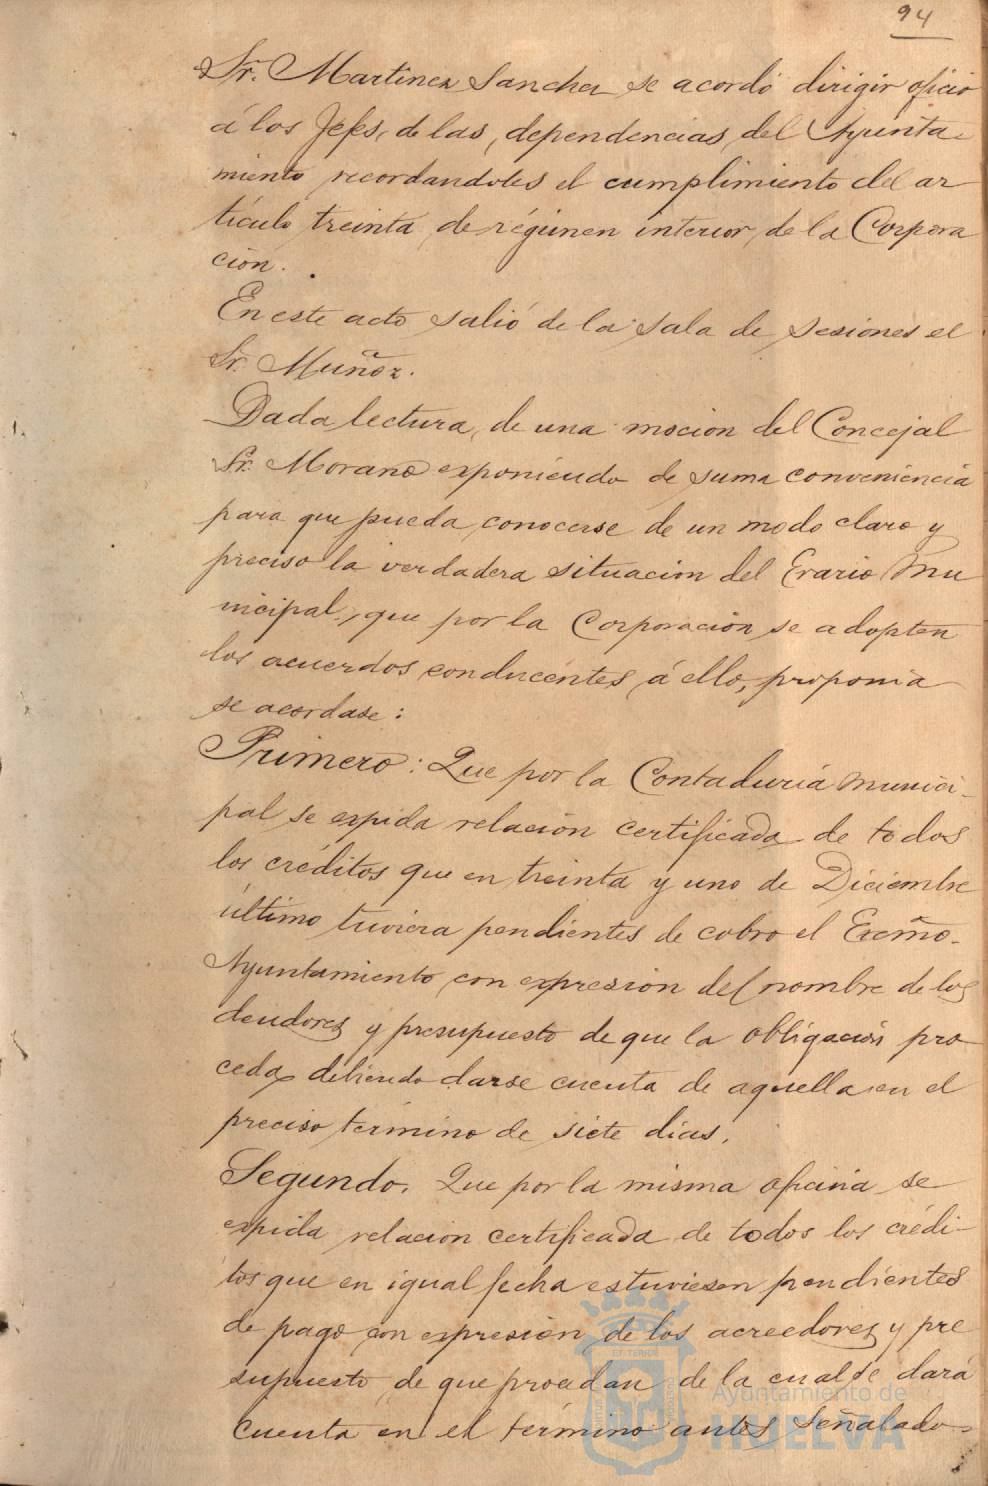 94
Sr. Martinez Sanchez se acordó dirigir oficio
á los Jefes de las dependencias del Ayunta-
miento recordandoles el cumplimiento del ar
tículo treinta de régimen interior de la Corpora
ción.
En este acto salió de la sala de sesiones el
Sr. Muñoz.
Dada lectura de una moción del Concejal
Sr. Morano exponiendo de suma conveniencia
para que pueda conocerse de un modo claro y
preciso la verdadera situación del Erario Mu
nicipal, que por la Corporación se adopten
los acuerdos conducentes á ello, proponia
se acordase:
Primero: Que por la Contaduria munici-
pal se expida relación certificada de todos
los créditos que en treinta y uno de Diciembre
último tuviera pendientes de cobro el Excmo.
Ayuntamiento con expresion del nombre de los
deudores y presupuesto de que la obligación pro
ceda debiendo darse cuenta de aquella en el
preciso término de siete dias.
Segundo. Que por la misma oficina se
expida relacion certificada de todos los crédi-
tos que en igual fecha estuviesen pendientes
de pago con expresión de los acreedores y pre
supuesto de que procedan de la cual se dará
cuenta en el término antes señalado.
Ayuntamiento de
HUELVA